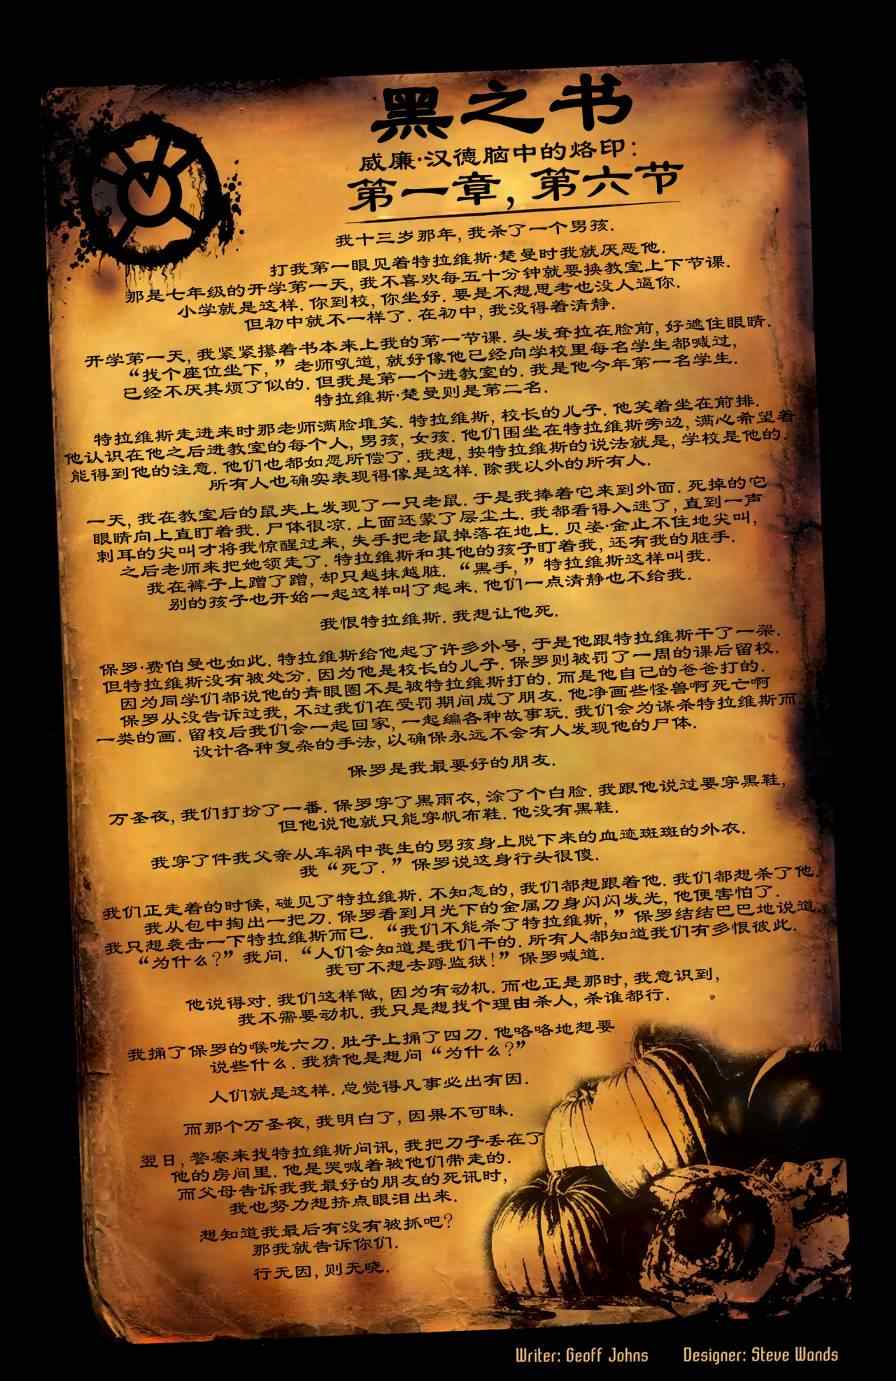 黑之书
威廉·汉德脑中的烙印:
第一章, 第六节
我十三岁那年, 我杀了一个男孩.
打我第一眼见着特拉维斯·楚曼时我就厌恶他.
那是七年级的开学第一天, 我不喜欢每五十分钟就要换教室上下节课.
小学就是这样. 你到校, 你坐好. 要是不想思考也没人逼你.
但初中就不一样了. 在初中, 我没得着清静.
开学第一天, 我紧紧搂着书本来上我的第一节课. 头发耷拉在脸前, 好遮住眼睛.
“找个座位坐下, ” 老师吼道, 就好像他已经向学校里每名学生都喊过,
已经不厌其烦了似的. 但我是第一个进教室的. 我是他今年第一名学生.
特拉维斯·楚曼则是第二名.
特拉维斯走进来时那老师满脸堆笑. 特拉维斯, 校长的儿子. 他笑着坐在前排.
他认识在他之后进教室的每个人, 男孩, 女孩. 他们围坐在特拉维斯旁边, 满心希望着
能得到他的注意. 他们也都如愿所偿了. 我想, 按特拉维斯的说法就是, 学校是他的.
所有人也确实表现得像是这样. 除我以外的所有人.
一天, 我在教室后的鼠夹上发现了一只老鼠. 于是我捧着它来到外面. 死掉的它
眼睛向上直盯着我. 尸体很凉. 上面还蒙了层尘土. 我都看得入迷了, 直到一声
刺耳的尖叫才将我惊醒过来, 失手把老鼠掉落在地上. 贝姿·金止不住地尖叫,
之后老师来把她领走了. 特拉维斯和其他的孩子盯着我, 还有我的脏手.
我在裤子上蹭了蹭, 却只越抹越脏. “黑手, ” 特拉维斯这样叫我.
别的孩子也开始一起这样叫了起来. 他们一点清静也不给我.
我恨特拉维斯. 我想让他死.
保罗·费伯曼也如此. 特拉维斯给他起了许多外号, 于是他跟特拉维斯干了一架.
但特拉维斯没有被处分. 因为他是校长的儿子. 保罗则被罚了一周的课后留校.
因为同学们都说他的青眼圈不是被特拉维斯打的. 而是他自己的爸爸打的.
保罗从没告诉过我, 不过我们在受罚期间成了朋友. 他净画些怪兽啊死亡啊
一类的画. 留校后我们会一起回家, 一起编各种故事玩. 我们会为谋杀特拉维斯而
设计各种复杂的手法, 以确保永远不会有人发现他的尸体.
保罗是我最要好的朋友.
万圣夜, 我们打扮了一番. 保罗穿了黑雨衣, 涂了个白脸. 我跟他说过要穿黑鞋,
但他说他就只能穿帆布鞋. 他没有黑鞋.
我穿了件我父亲从车祸中丧生的男孩身上脱下来的血迹斑斑的外衣.
我 “死了. ” 保罗说这身行头很傻.
我们正走着的时候, 碰见了特拉维斯. 不知怎的, 我们都想跟着他. 我们都想杀了他.
我从包中掏出一把刀. 保罗看到月光下的金属刀身闪闪发光, 他便害怕了.
我只想袭击一下特拉维斯而已. “我们不能杀了特拉维斯, ” 保罗结结巴巴地说道.
“为什么?” 我问. “人们会知道是我们干的. 所有人都知道我们有多恨彼此.
我可不想去蹲监狱!” 保罗喊道.
他说得对. 我们这样做, 因为有动机. 而也正是那时, 我意识到,
我不需要动机. 我只是想找个理由杀人, 杀谁都行.
我捅了保罗的喉咙六刀. 肚子上捅了四刀. 他咯咯地想要
说些什么. 我猜他是想问 “为什么?”
人们就是这样. 总觉得凡事必出有因.
而那个万圣夜, 我明白了, 因果不可昧.
翌日, 警察来找特拉维斯问讯, 我把刀子丢在了
他的房间里. 他是哭喊着被他们带走的.
而父母告诉我我最好的朋友的死讯时,
我也努力想挤点眼泪出来.
想知道我最后有没有被抓吧?
那我就告诉你们.
行无因, 则无晓.
Writer: Geoff Johns Designer: Steve Wands